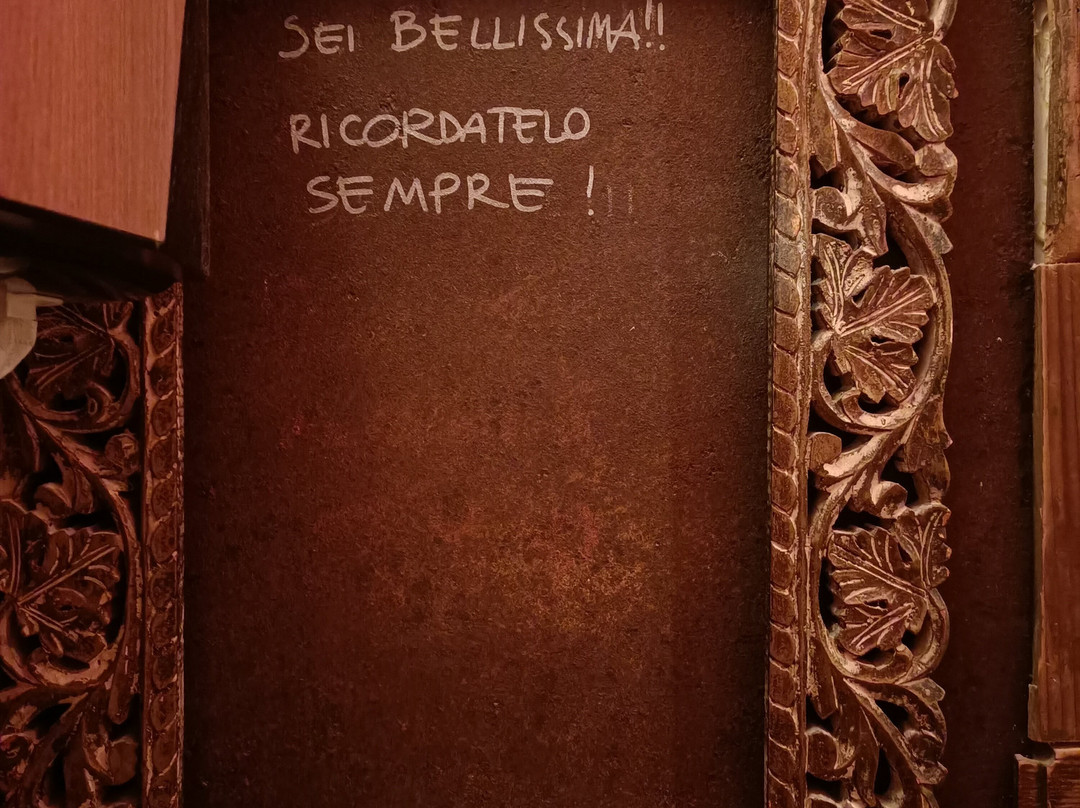 SEI BELLISSIMA!!
RICORDATELO
SEMPRE !